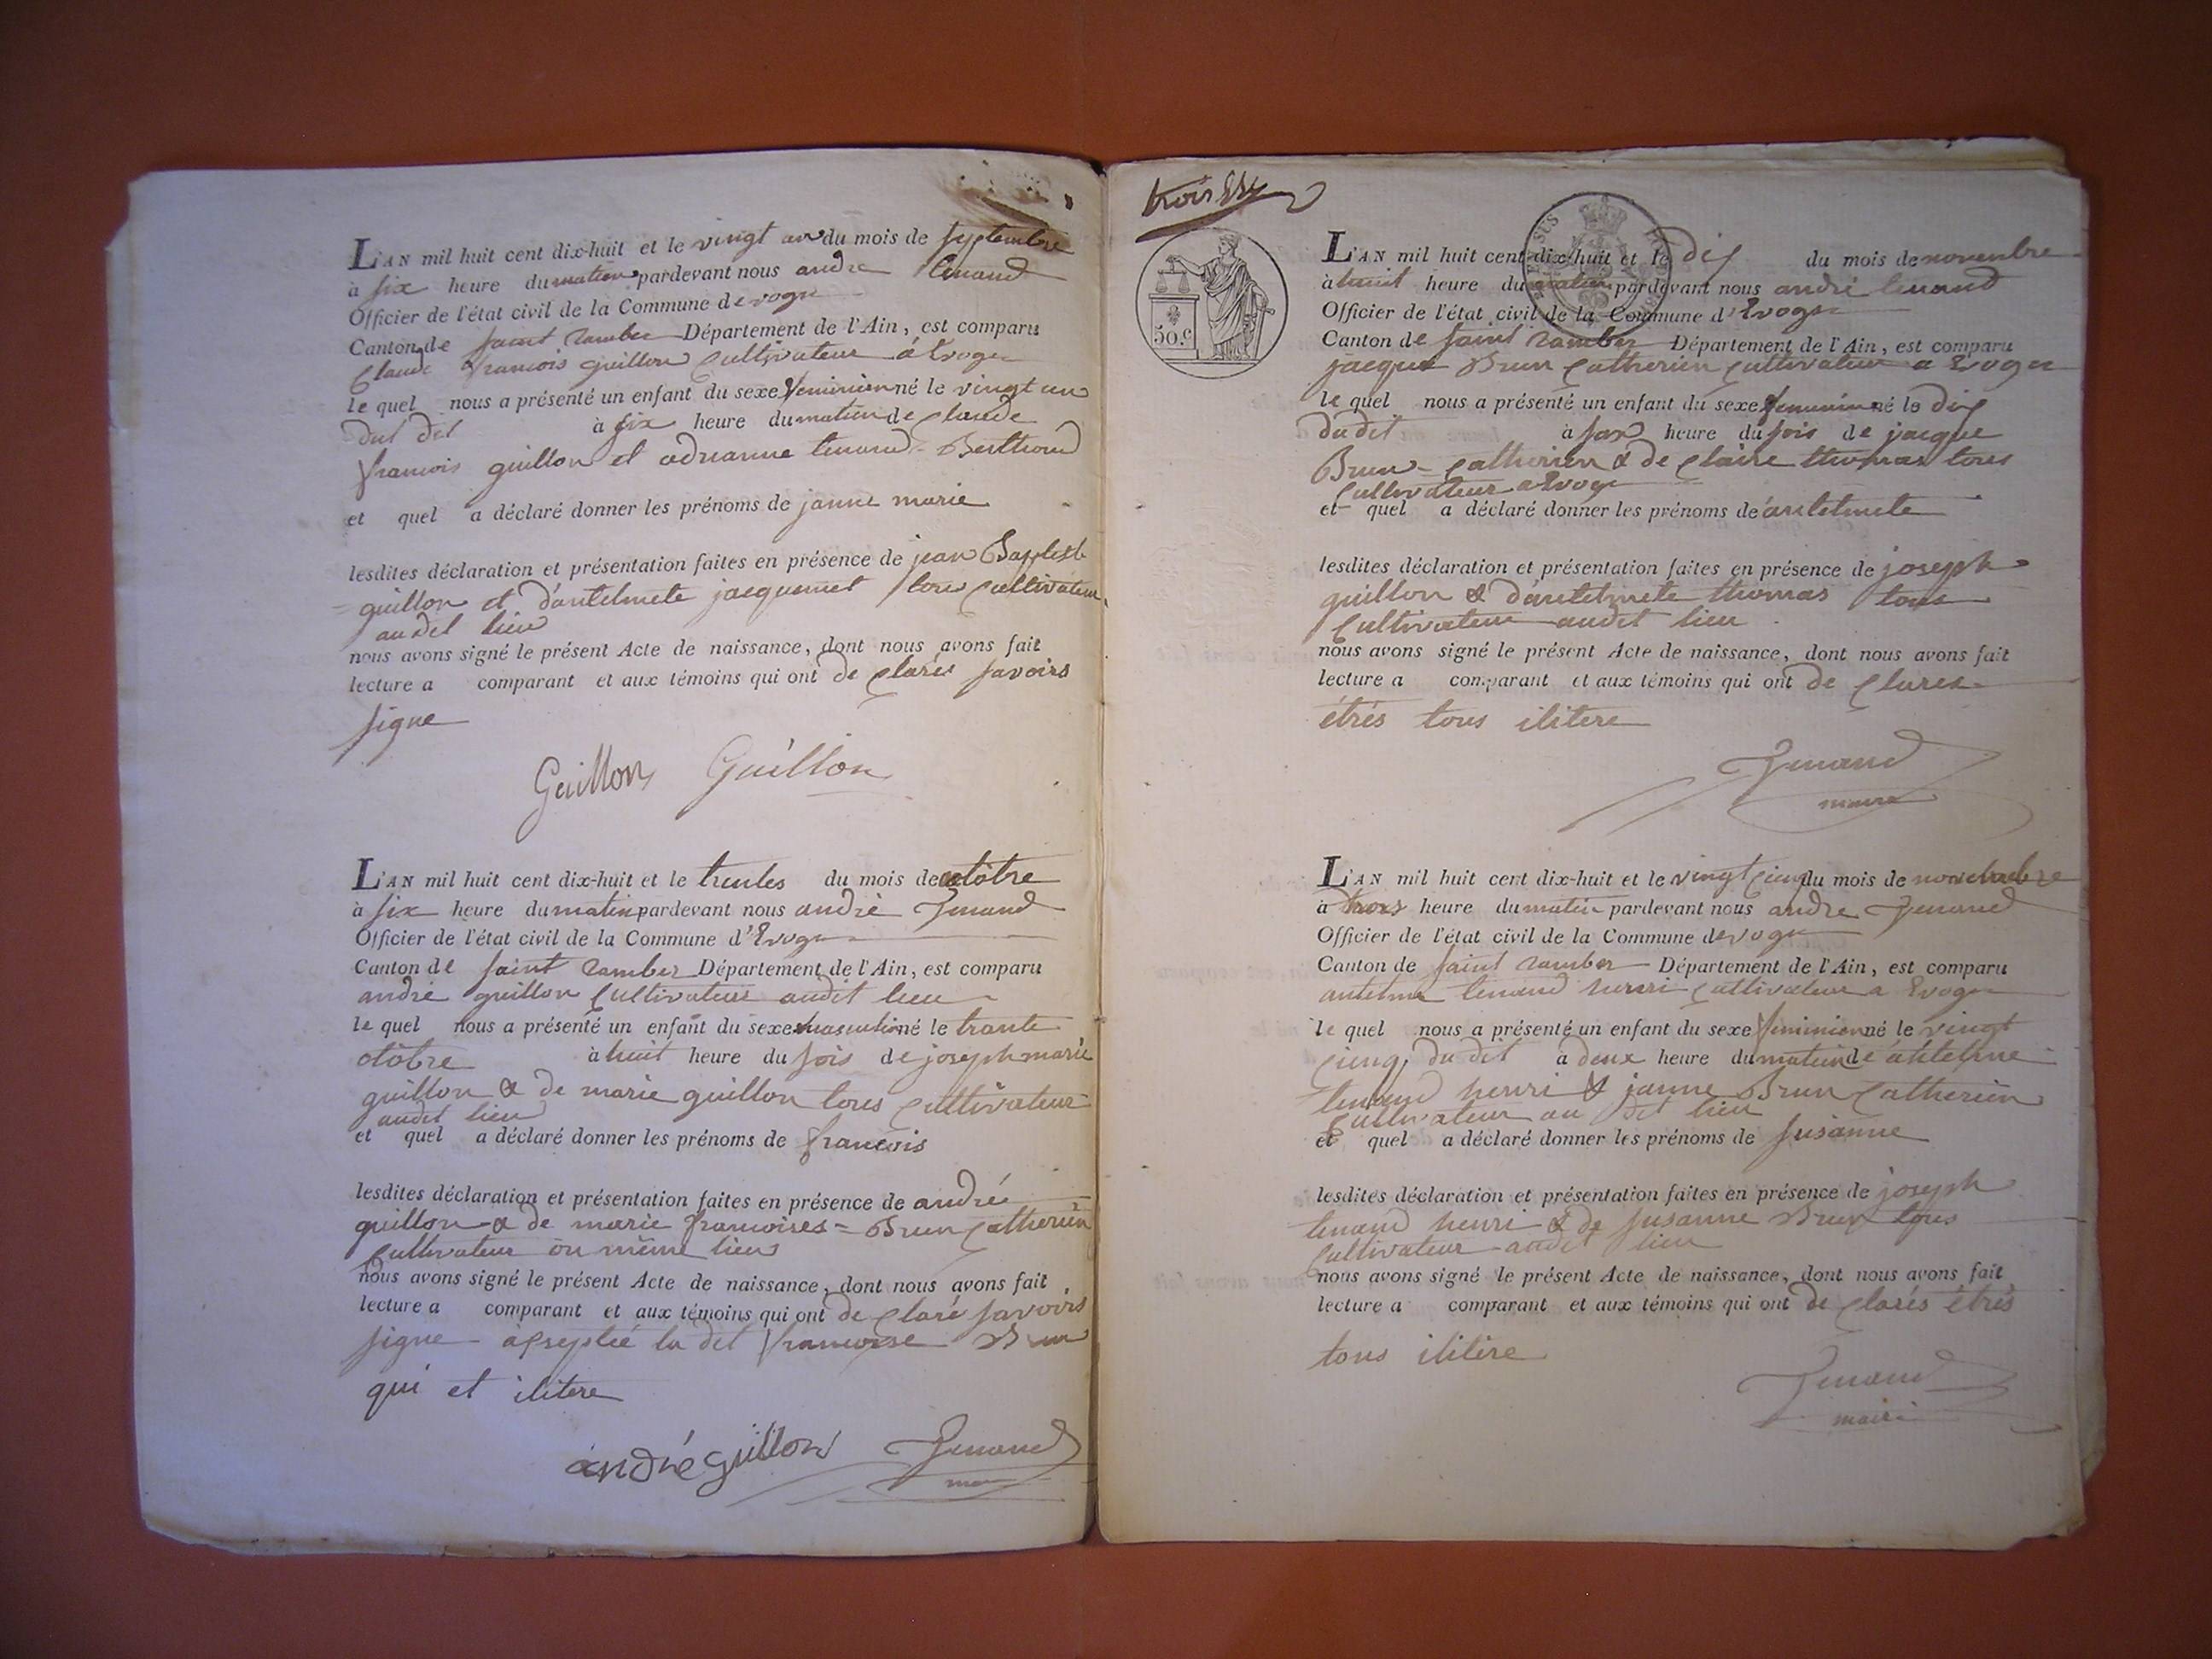 L'AN mil huit cent dix-huit et le vingt un du mois de septembre
à six heure du matien pardevant nous andré tenand
Officier de l'état civil de la Commune devoge
Canton de saint Ramber Département de l'Ain, est comparu
Claude francois guillon Cultivateur á Evoge
le quel nous a présenté un enfant du sexe feminien né le vingt un
dul dit à six heure du matien de Claude
francois guillon et adrianne tenand = Berthond
et quel a déclaré donner les prénoms de janne marie
lesdites déclaration et présentation faites en présence de jean Baptiste
= guillon et d'antelmete jacquemet tous Cultivateur
audit lieu
nous avons signé le présent Acte de naissance, dont nous avons fait
lecture a comparant et aux témoins qui ont de Clarés savoirs
signe
Guillon Guillon
L'AN mil huit cent dix-huit et le trentes du mois de octôbre
à six heure du matin pardevant nous andré Tenand
Officier de l'état civil de la Commune d'Evoge
Canton de saint Ramber Département de l'Ain, est comparu
andré guillon Cultivateur audit lieu
le quel nous a présenté un enfant du sexe masculin né le trante
otôbre à huit heure du sois de joseph marie
guillon & de marie guillon tous Cultivateur
audit lieu
et quel a déclaré donner les prénoms de francois
lesdites déclaration et présentation faites en présence de andré
guillon & de marie francoises = Brun Catherien
Cultivateur ou même lieu
nous avons signé le présent Acte de naissance, dont nous avons fait
lecture a comparant et aux témoins qui ont de Claré savoirs
signe - apseptée la dit francoise Brun
qui et ilitere
andré guillon Tenand
trois
50.c
L'AN mil huit cent dix-huit et le dix du mois de novembre
à huit heure du matien pardevant nous andré tenand
Officier de l'état civil de la Commune d'Evoge
Canton de saint Ramber Département de l'Ain, est comparu
jacque Brun Catherien Cultivateur a Evoge
le quel nous a présenté un enfant du sexe femenin né le dix
dudit à six heure du sois de jacque
Brun = Catherien & de Claire thomas tous
Cultivateur a Evoge
et quel a déclaré donner les prénoms de antelmete
lesdites déclaration et présentation faites en présence de joseph
guillon & d'antelmete thomas tous
Cultivateur audit lieu
nous avons signé le présent Acte de naissance, dont nous avons fait
lecture a comparant et aux témoins qui ont de Clares
étrés tous ilitere
Tenand
maire
L'AN mil huit cent dix-huit et le vingt cinq du mois de novembre
à trois heure du matin pardevant nous andre Tenand
Officier de l'état civil de la Commune devoge
Canton de saint Ramber Département de l'Ain, est comparu
antelme tenand henri Cultivateur a Evoge
le quel nous a présenté un enfant du sexe feminien né le vingt
cinq du dit à deux heure du matien de antelme
tenand henri & janne Brun Catherien
Cultivateur au dit lieu
et quel a déclaré donner les prénoms de susanne
lesdites déclaration et présentation faites en présence de joseph
tenand henri & de susanne Brun tous
Cultivateur audit lieu
nous avons signé le présent Acte de naissance, dont nous avons fait
lecture a comparant et aux témoins qui ont de Clarés étrés
tous ilitere
Tenand
maire